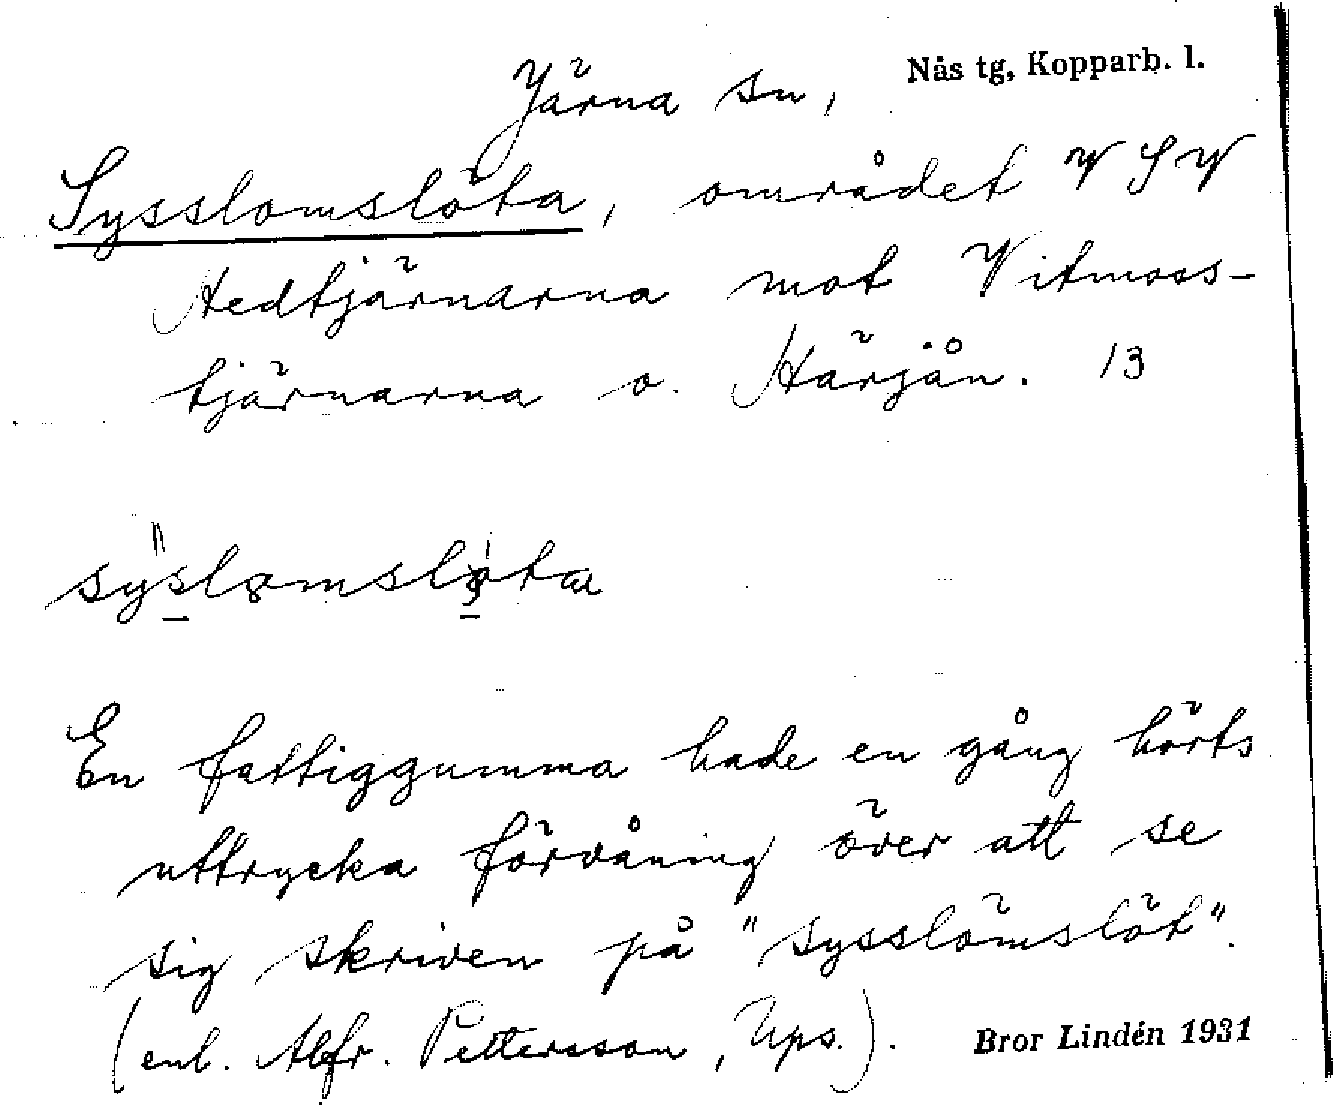 Järna sn, Nås tg, Kopparb. l.
Sysslomslöta, området V S V
Hedtjärnarna mot Vitmoss-
tjärnarna o. Härjån. 13
syslomslota
En fattiggumma hade en gång hörts
uttrycka förvåning över att se
sig skriven på "sysslömslöt".
(enl. Alfr. Pettersson, Ups.). Bror Lindén 1931